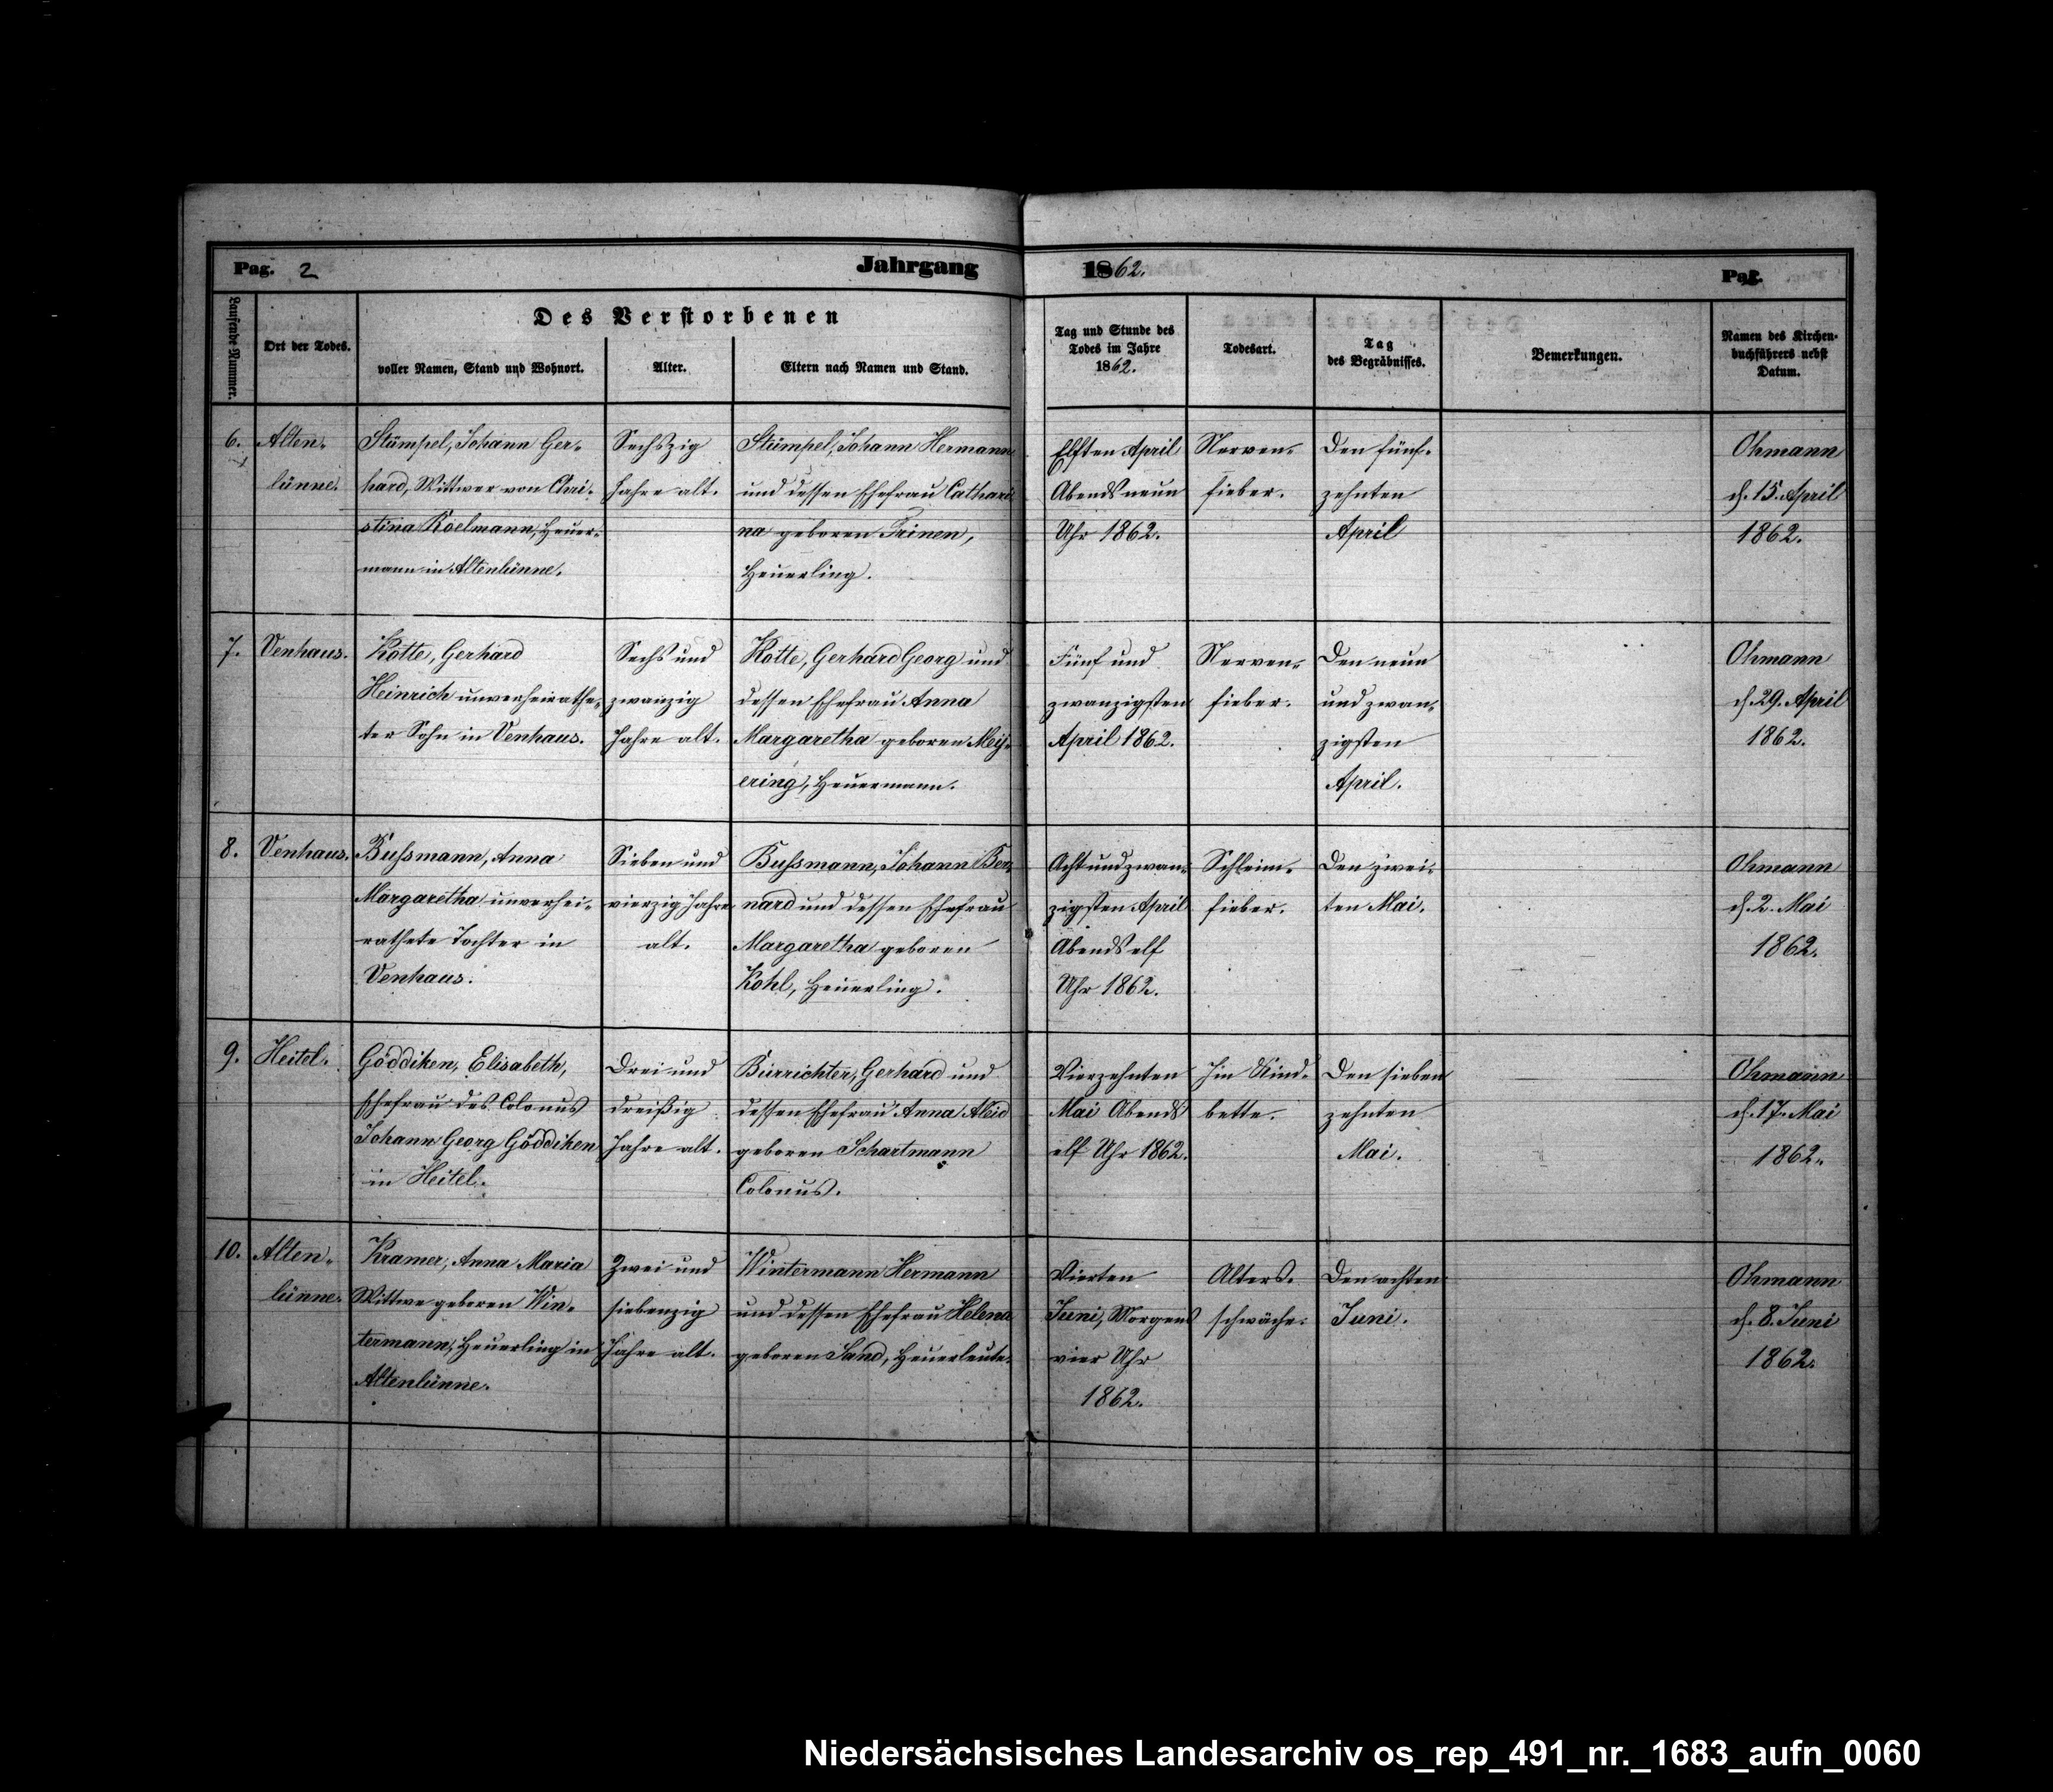 Pag. 2
Jahrgang
1862.
Pag.
Laufende Nummer.
Ort der Todes.
Des Verstorbenen
voller Namen, Stand und Wohnort.
Alter.
Eltern nach Namen und Stand.
Tag und Stunde des
Todes im Jahre
1862.
Todesart.
Tag
des Begräbnisses.
Bemerkungen.
Namen des Kirchen-
buchführers nebst
Datum.
6.
Alten-
lünne.
Stümpel, Johann Ger-
hard, Wittwer von Chri-
stina Koelmann, Heuer-
mann in Altenlünne.
Sechszig
Jahre alt.
Stümpel, Johann Hermann
und dessen Ehefrau Cathari
na geboren Trinen,
Heuerling.
Elften April
Abends neun
Uhr 1862.
Nerven-
fieber.
Den fünf-
zehnten
April
Ohmann
d. 15. April
1862.
7.
Venhaus.
Kotte, Gerhard
Heinrich unverheirathe-
ter Sohn in Venhaus.
Sechs und
zwanzig
Jahre alt.
Kotte, Gerhard Georg und
dessen Ehefrau Anna
Margaretha geboren Mey-
ering, Heuermann.
Fünf und
zwanzigsten
April 1862.
Nerven-
fieber.
Den neun
und zwan-
zigsten
April.
Ohmann
d. 29. April
1862.
8.
Venhaus.
Bussmann, Anna
Margaretha unverhei-
rathete Tochter in
Venhaus.
Sieben und
vierzig Jahre
alt.
Bussmann, Johann Ber-
nard und dessen Ehefrau
Margaretha geboren
Kohl, Heuerling.
Acht und zwan-
zigsten April
Abends elf
Uhr 1862.
Schleim-
fieber.
Den zwei-
ten Mai.
Ohmann
d. 2. Mai
1862.
9.
Heitel.
Göddiken, Elisabeth,
Ehefrau des Colonus
Johann Georg Göddiken
in Heitel.
Drei und
dreißig
Jahre alt.
Bürrichter, Gerhard und
dessen Ehefrau Anna Aleid
geboren Schartmann
Colonus.
Vierzehnten
Mai Abends
elf Uhr 1862.
Im Kind-
bette.
Den sieben
zehnten
Mai.
Ohmann
d. 17. Mai
1862.
10.
Alten-
lünne.
Kramer, Anna Maria
Wittwe geboren Win-
termann, Heuerling in
Altenlünne.
Zwei und
siebenzig
Jahre alt.
Wintermann Hermann
und dessen Ehefrau Helena
geboren Sand, Heuerleute.
Vierten
Juni, Morgens
vier Uhr
1862.
Alters-
schwäche.
Den achten
Juni.
Ohmann
d. 8. Juni
1862.
Niedersächsisches Landesarchiv os_rep_491_nr._1683_aufn_0060